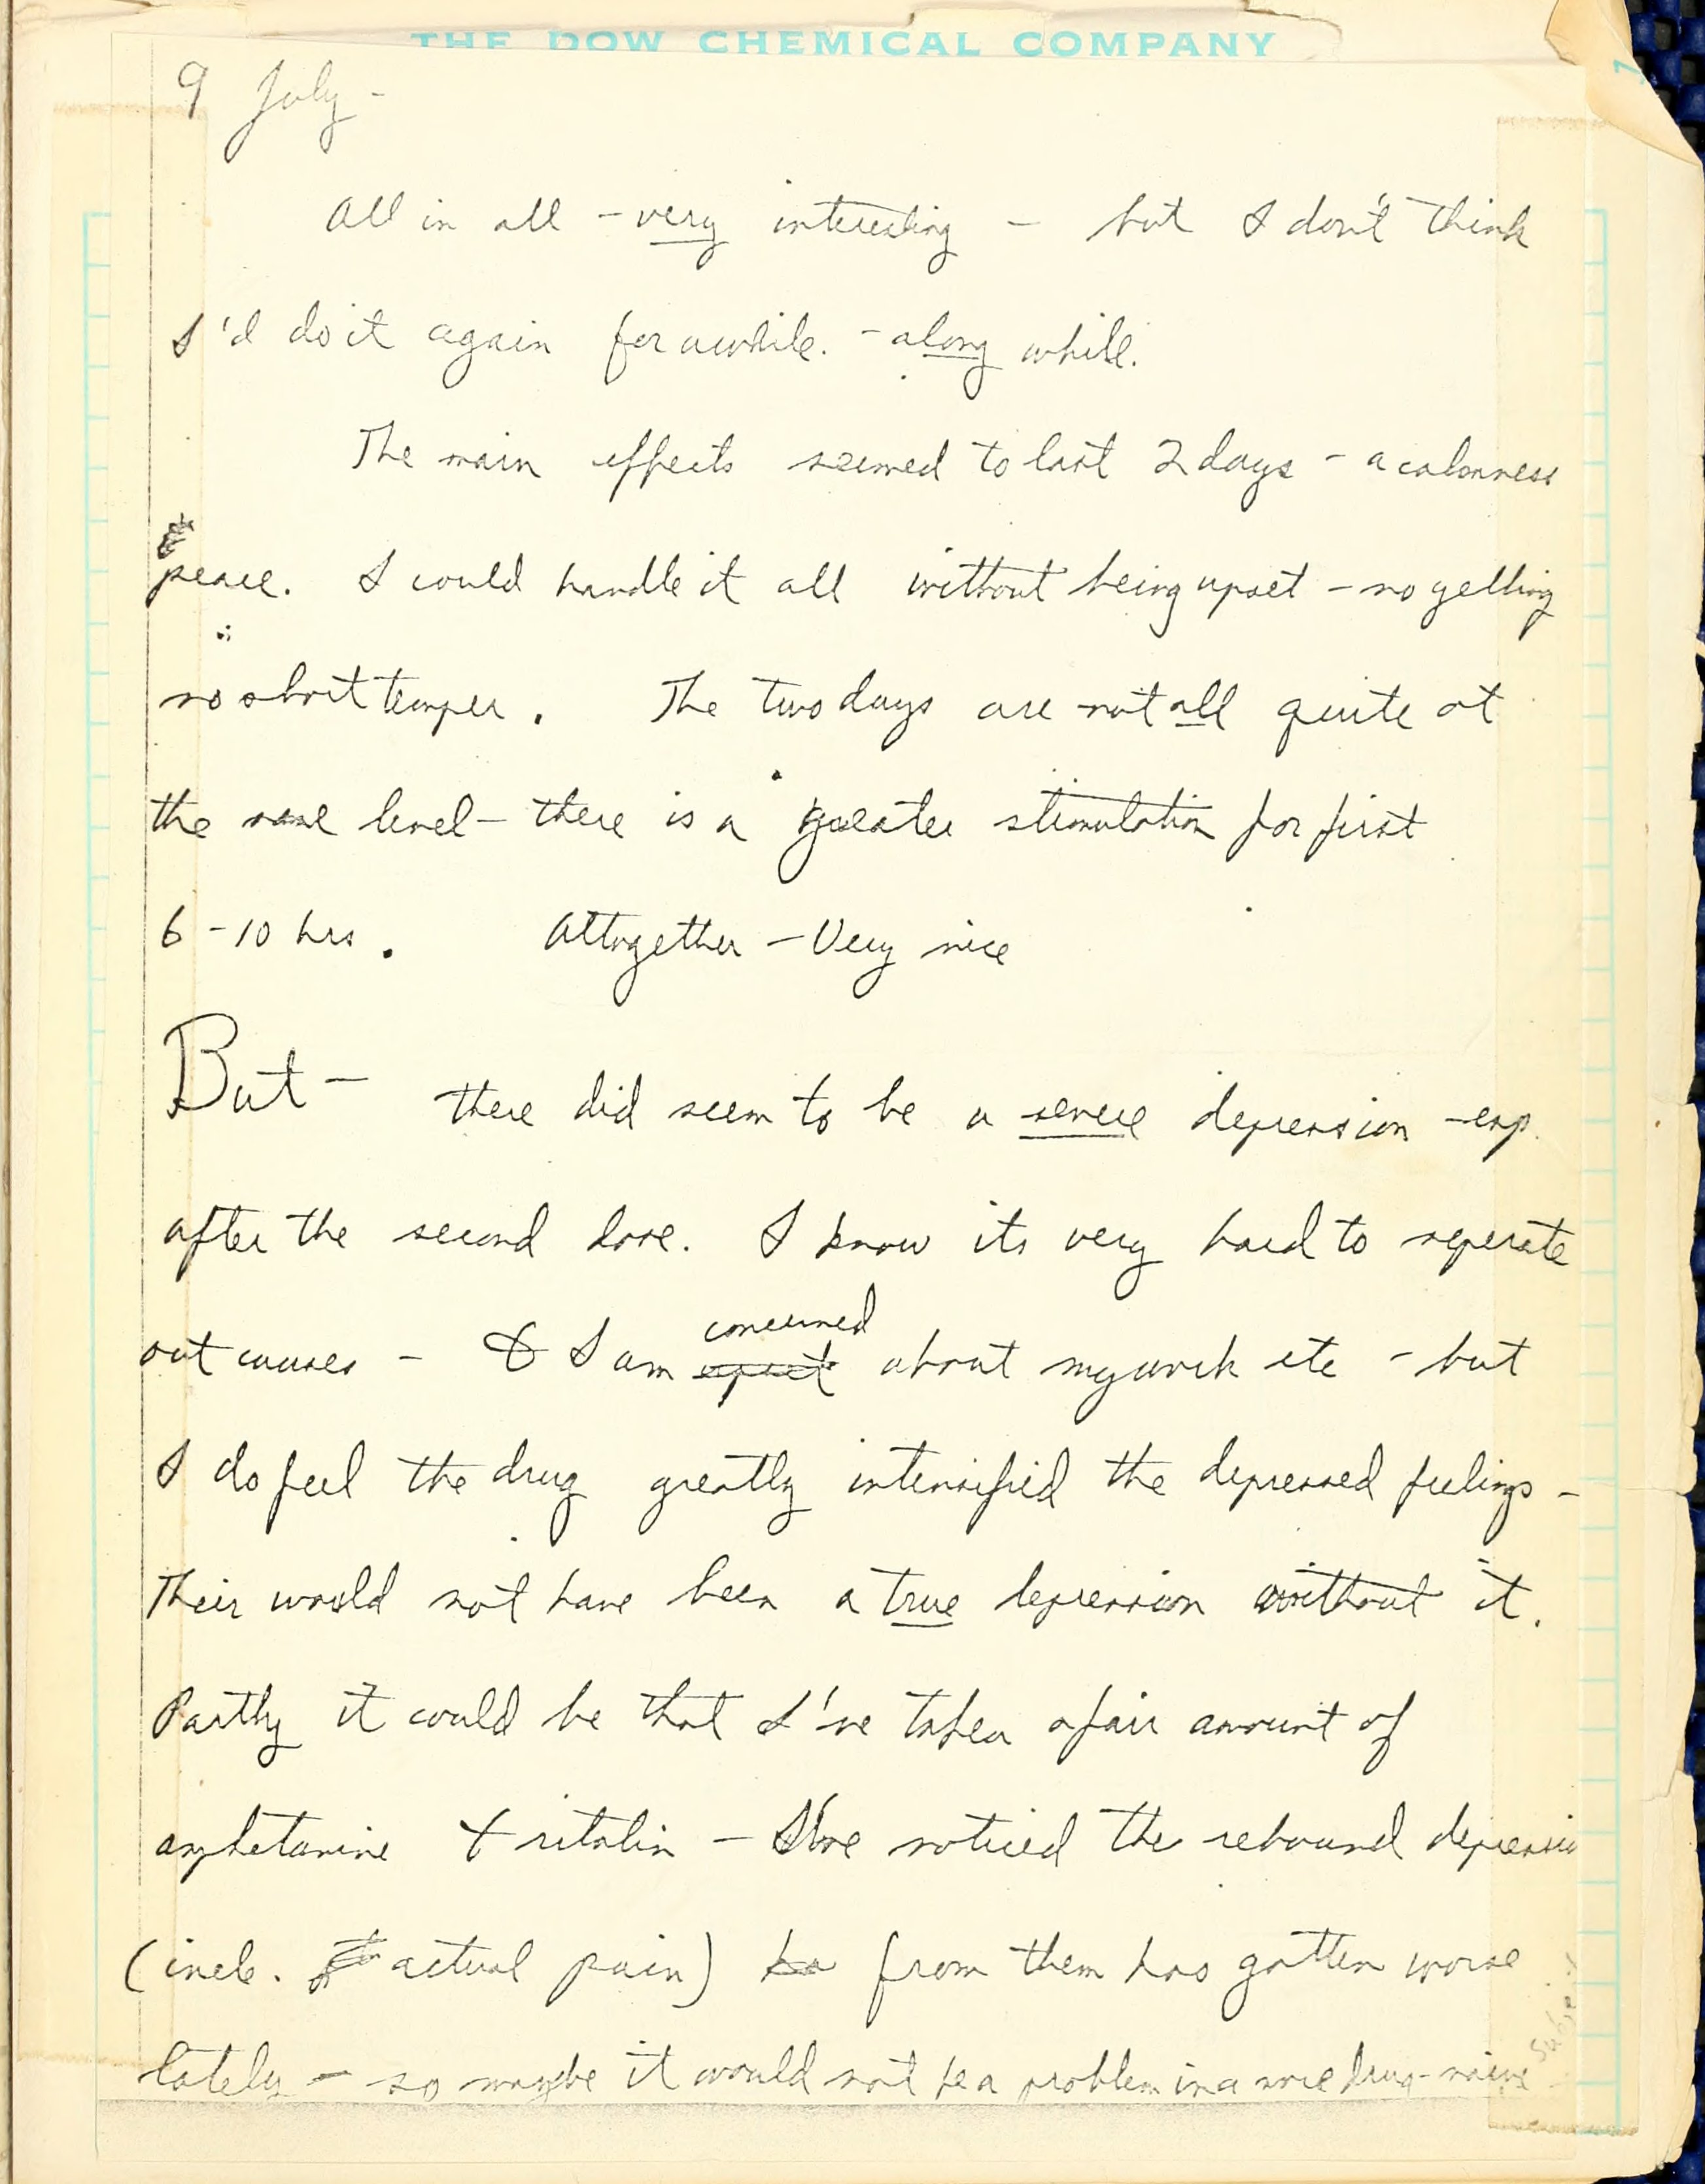 THE DOW CHEMICAL COMPANY
9 July -
All in all - very interesting - but I don't think
I'd do it again for awhile. - along while.
The main effects seemed to last 2 days - a calmness
& peace. I could handle it all without being upset - no yelling
no short temper. The two days are not all quite at
the same level - there is a greater stimulation for first
6 - 10 hrs. Altogether - Very nice
But - there did seem to be a severe depression - esp.
after the second dose. I know its very hard to seperate
out causes - & I am upset concerned about my work etc - but
I do feel the drug greatly intensified the depressed feelings -
Their would not have been a true depression without it.
Partly it could be that I've taken a fair amount of
amphetamine & ritalin - I've noticed the rebound depression
(incl. actual pain) ha from them has gotten worse
lately - so maybe it would not be a problem in a more drug-naive
subject